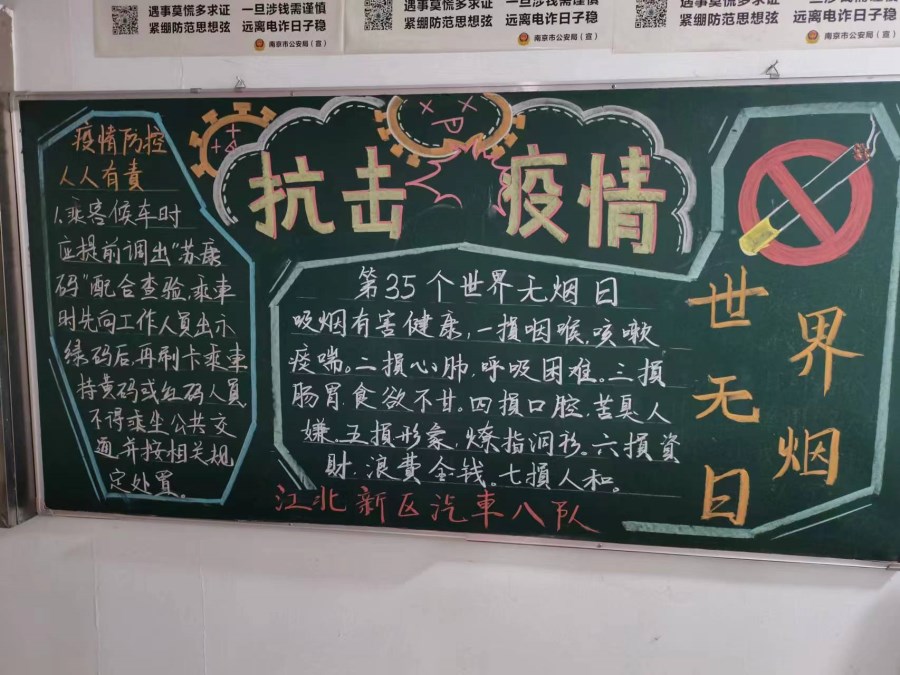 遇事莫慌多求证 一旦涉钱需谨慎
紧绷防范思想弦 远离电诈日子稳
南京市公安局(宣)
遇事莫慌多求证 一旦涉钱需谨慎
紧绷防范思想弦 远离电诈日子稳
南京市公安局(宣)
遇事莫慌多求证 一旦涉钱需谨慎
紧绷防范思想弦 远离电诈日子稳
南京市公安局(宣)
抗击疫情
疫情防控
人人有責
1.乘客候车时
应提前调出“苏康
码”配合查验,乘車
时先向工作人员出示
绿码后,再刷卡乘車
持黄码或红码人員
不得乘坐公共交
通,并按相关规
定处置。
第35个世界无烟日
吸烟有害健康,一損咽喉,咳嗽
痰喘。二損心肺,呼吸困难。三損
肠胃食欲不甘。四損口腔,苦臭人
嫌。五損形象,燎指洞衫。六損資
財,浪费金钱。七損人和。
江北新区汽車八队
世界
无烟
日